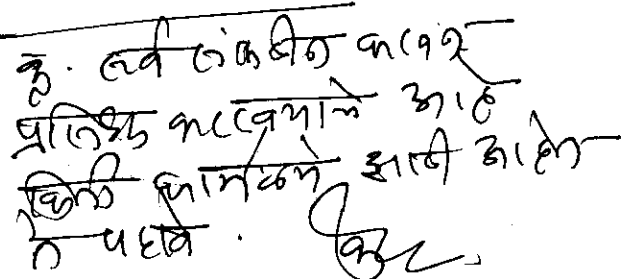 कृ. सर्व संकलीत करून
प्रसिध्द करावयाचे आहे
किती कार्यक्रमे झाली आहेत
ते पहावे.